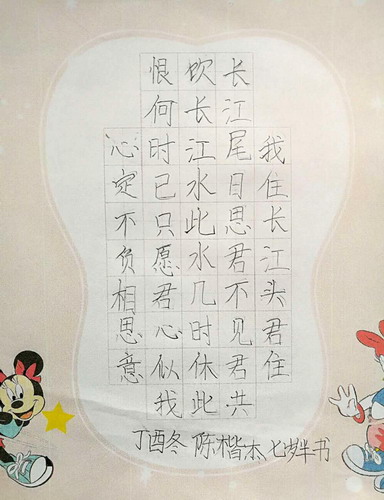 我住长江头君住
长江尾日思君不见君洪
饮长江水此水几时休此
恨何时已只愿君心似我
心定不负相思意
丁酉冬 陈楷杰 七岁半书